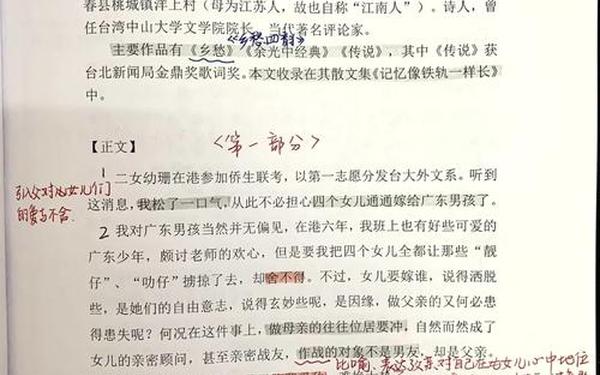 春县桃城镇洋上村（母为江苏人，故也自称“江南人”）。诗人，曾
任台湾中山大学文学院院长、当代著名评论家。
《乡愁四韵》
主要作品有《乡愁》《余光中经典》《传说》，其中《传说》获
台北新闻局金鼎奖歌词奖。本文收录在其散文集《记忆像铁轨一样长》
中。
【正文】
〈第一部分〉
1 二女幼珊在港参加侨生联考，以第一志愿分发台大外文系。听到
这消息，我松了一口气，从此不必担心四个女儿通通嫁给广东男孩了。
引入父对女儿们
的爱与不舍.
2 我对广东男孩当然并无偏见，在港六年，我班上也有好些可爱的
广东少年，颇讨老师的欢心，但是要我把四个女儿全都让那些“靓
仔”、“叻仔”掳掠了去，却舍不得。不过，女儿要嫁谁，说得洒脱
些，是她们的自由意志，说得玄妙些呢，是因缘，做父亲的又何必患
得患失呢？何况在这件事上，做母亲的往往位居要冲，自然而然成了
女儿的亲密顾问，甚至亲密战友，作战的对象不是男友，却是父亲。
比喻、表达父亲对自己在女儿心中地位